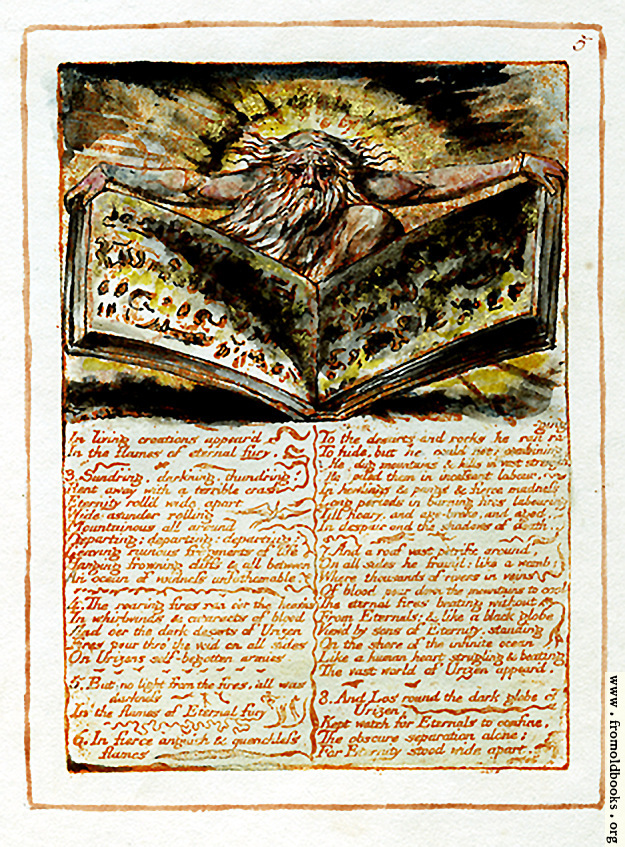 5
In living creations appear'd
In the flames of eternal fury.
3. Sundring, darkning, thundring!
Rent away with a terrible crash
Eternity roll'd wide apart
Wide asunder rolling
Mountainous all around
Departing; departing; departing:
Leaving ruinous fragments of life
Hanging frowning cliffs & all between
An ocean of voidness unfathomable
4. The roaring fires ran o'er the heav'ns
In whirlwinds & cataracts of blood
And o'er the dark desarts of Urizen
Fires pour thro' the void on all sides
On Urizens self-begotten armies.
5. But no light from the fires. all was
darkness
In the flames of Eternal fury
6. In fierce anguish & quenchless
flames
To the desarts and rocks he ran ra-
ging
To hide, but he could not: combining
He dug mountains & hills in vast strength,
He piled them in incessant labour,
In howlings & pangs & fierce madness
Long periods in burning fires labouring
Till hoary, and age-broke, and aged,
In despair and the shadows of death.
7. And a roof vast petrific around,
On all sides he fram'd: like a womb;
Where thousands of rivers in veins
Of blood pour down the mountains to cool
The eternal fires beating without
From Eternals; & like a black globe
View'd by sons of Eternity, standing
On the shore of the infinite ocean
Like a human heart strugling & beating
The vast world of Urizen appear'd.
8. And Los round the dark globe of
Urizen,
Kept watch for Eternals to confine,
The obscure separation alone;
For Eternity stood wide apart,
www.fromoldbooks.org